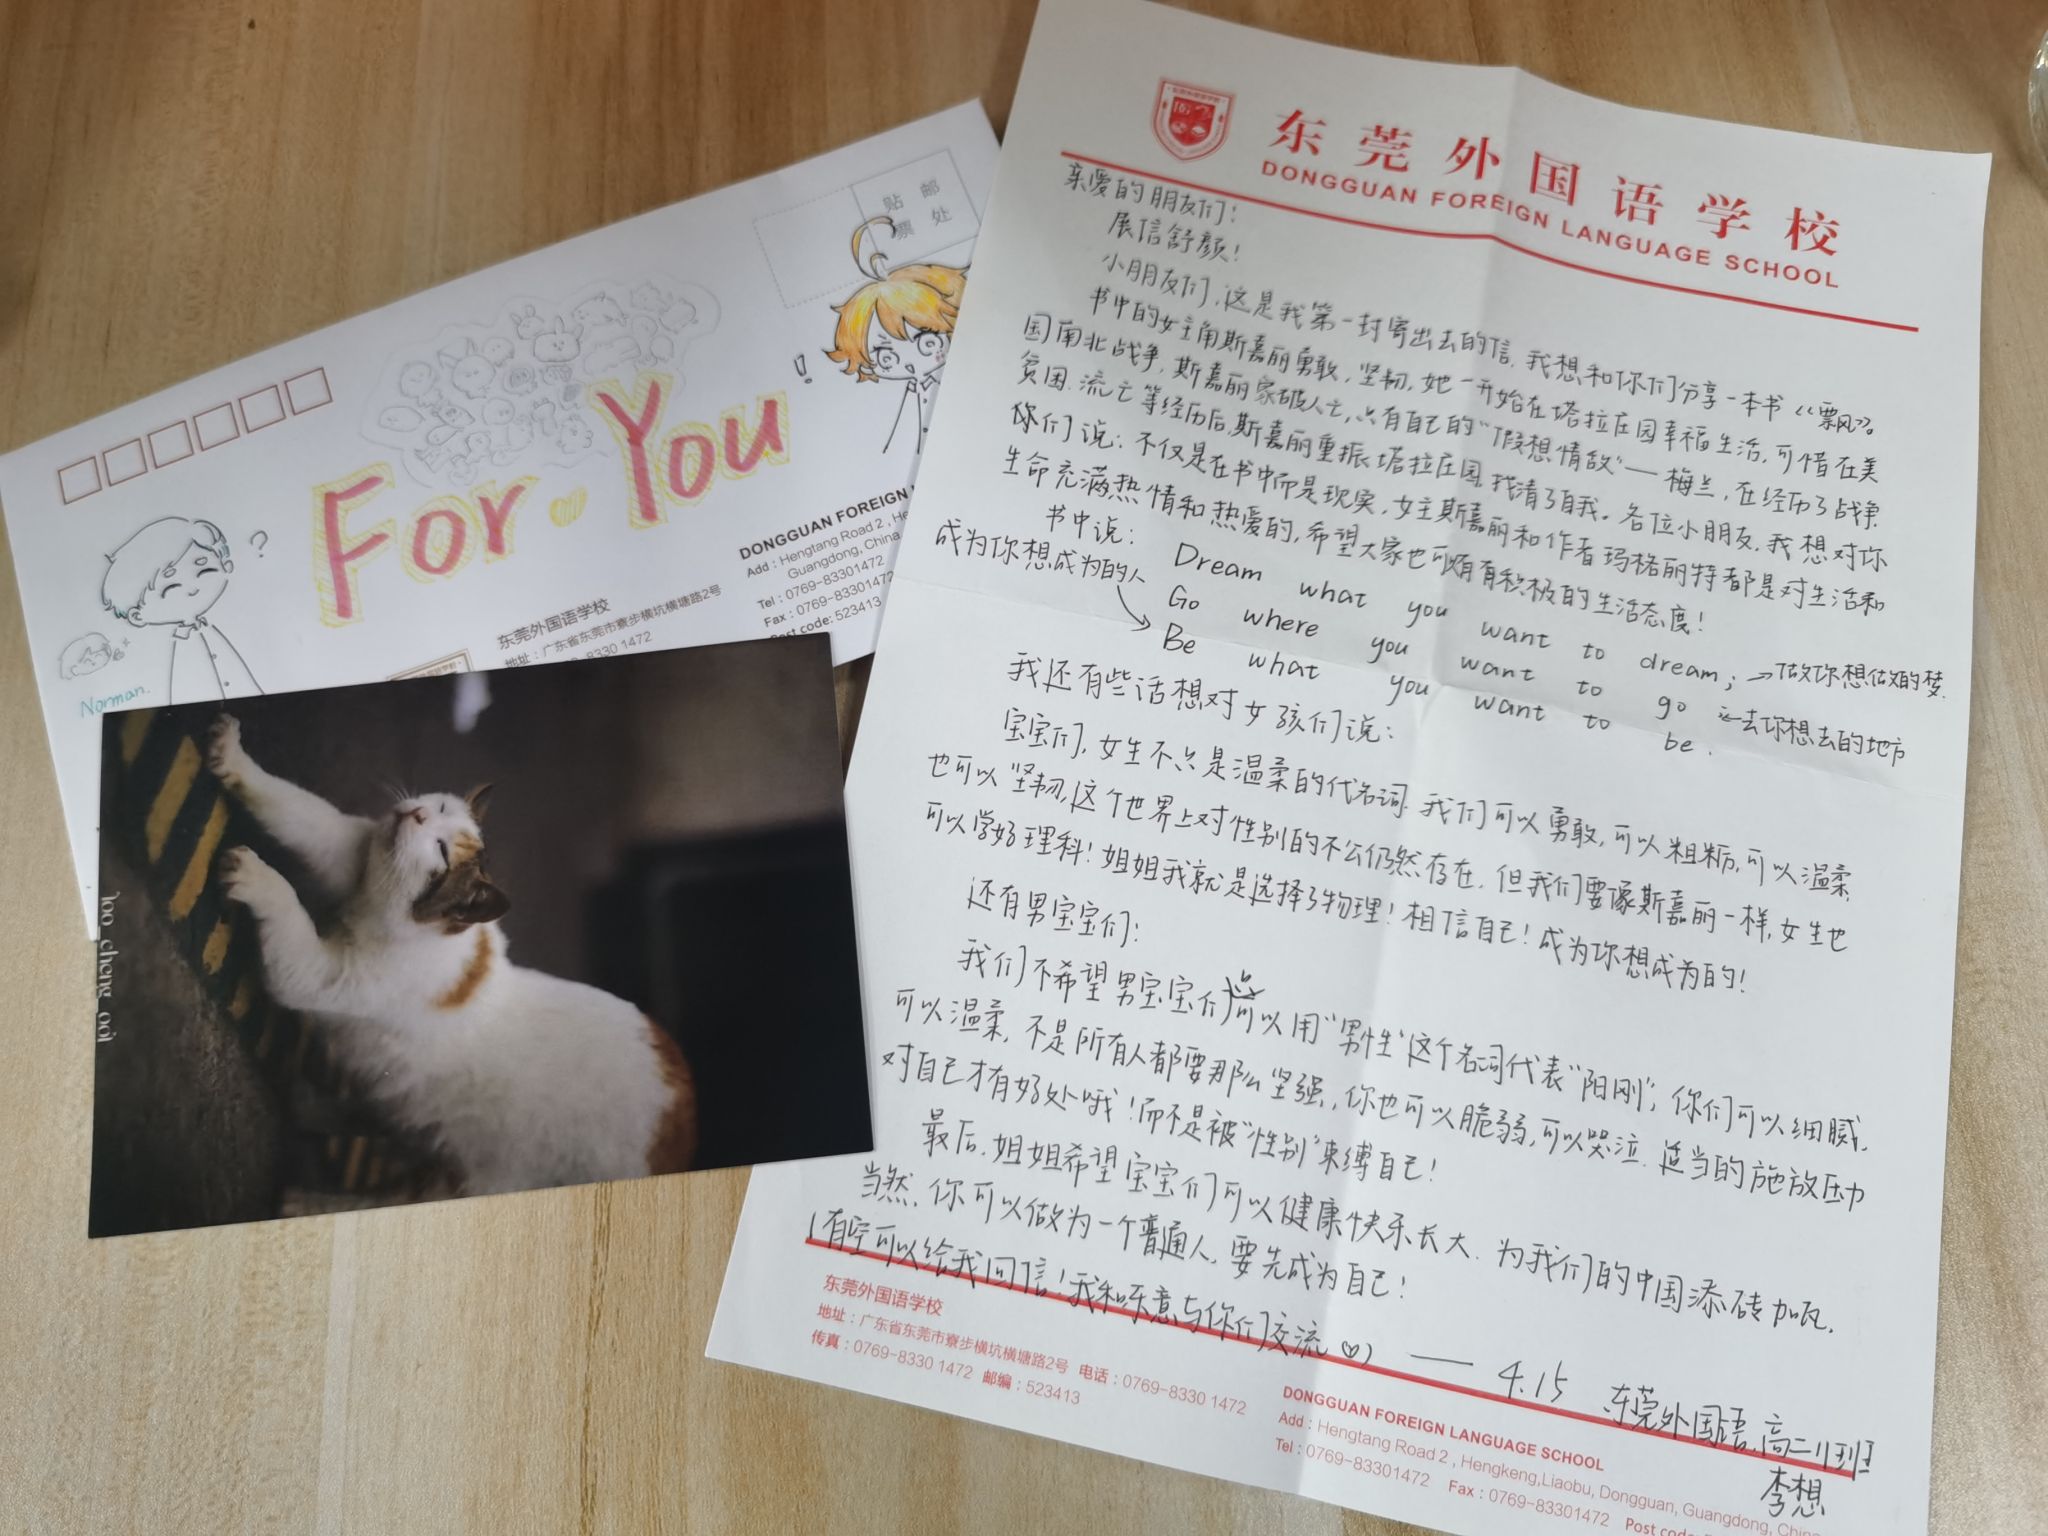 贴 邮
票 处
For. You
?
!
Norman.
DONGGUAN FOREIGN
Add : Hengtang Road 2 , He
Guangdong, China
Tel : 0769-83301472
Fax : 0769-83301472
Post code: 523413
东莞外国语学校
地址：广东省东莞市寮步横坑横塘路2号
0769-8330 1472
loo_cheng_ooi
东莞外国语学校
DONGGUAN FOREIGN LANGUAGE SCHOOL
亲爱的朋友们：
展信舒颜！
小朋友们，这是我第一封寄出去的信，我想和你们分享一本书《飘》。
书中的女主角斯嘉丽勇敢，坚韧，她一开始在塔拉庄园幸福生活，可惜在美
国南北战争，斯嘉丽家破人亡，只有自己的“假想情敌”—梅兰，在经历了战争
贫困、流亡等经历后，斯嘉丽重振塔拉庄园，找清了自我。各位小朋友，我想对你
你们说：不仅是在书中而是现实，女主斯嘉丽和作者玛格丽特都是对生活和
生命充满热情和热爱的，希望大家也可有积极的生活态度！
书中说： Dream what you want to dream; →做你想做的梦.
Go where you want to go ←去你想去的地方
成为你想成为的人 Be what you want to be.
我还有些话想对女孩们说：
宝宝们，女生不只是温柔的代名词，我们可以勇敢，可以粗粝，可以温柔，
也可以坚韧，这个世界上对性别的不公仍然存在，但我们要像斯嘉丽一样，女生也
可以学好理科！姐姐我就是选择了物理！相信自己！成为你想成为的！
还有男宝宝们：
我们不希望男宝宝们只可以用“男性”这个名词代表“阳刚”，你们可以细腻，
可以温柔，不是所有人都要那么坚强，你也可以脆弱，可以哭泣，适当的施放压力
对自己才有好处哦！而不是被“性别”束缚自己！
最后，姐姐希望宝宝们可以健康快乐长大，为我们的中国添砖加瓦，
当然，你可以做为一个普通人，要先成为自己！
（有空可以给我回信！我和乐意与你们交流♡） —— 4.15 东莞外国语，高二11班
李想
东莞外国语学校
地址：广东省东莞市寮步横坑横塘路2号 电话：0769-8330 1472
传真：0769-8330 1472 邮编：523413
DONGGUAN FOREIGN LANGUAGE SCHOOL
Add : Hengtang Road 2 , Hengkeng,Liaobu, Dongguan, Guangdong, China
Tel : 0769-83301472 Fax : 0769-83301472 Post code: